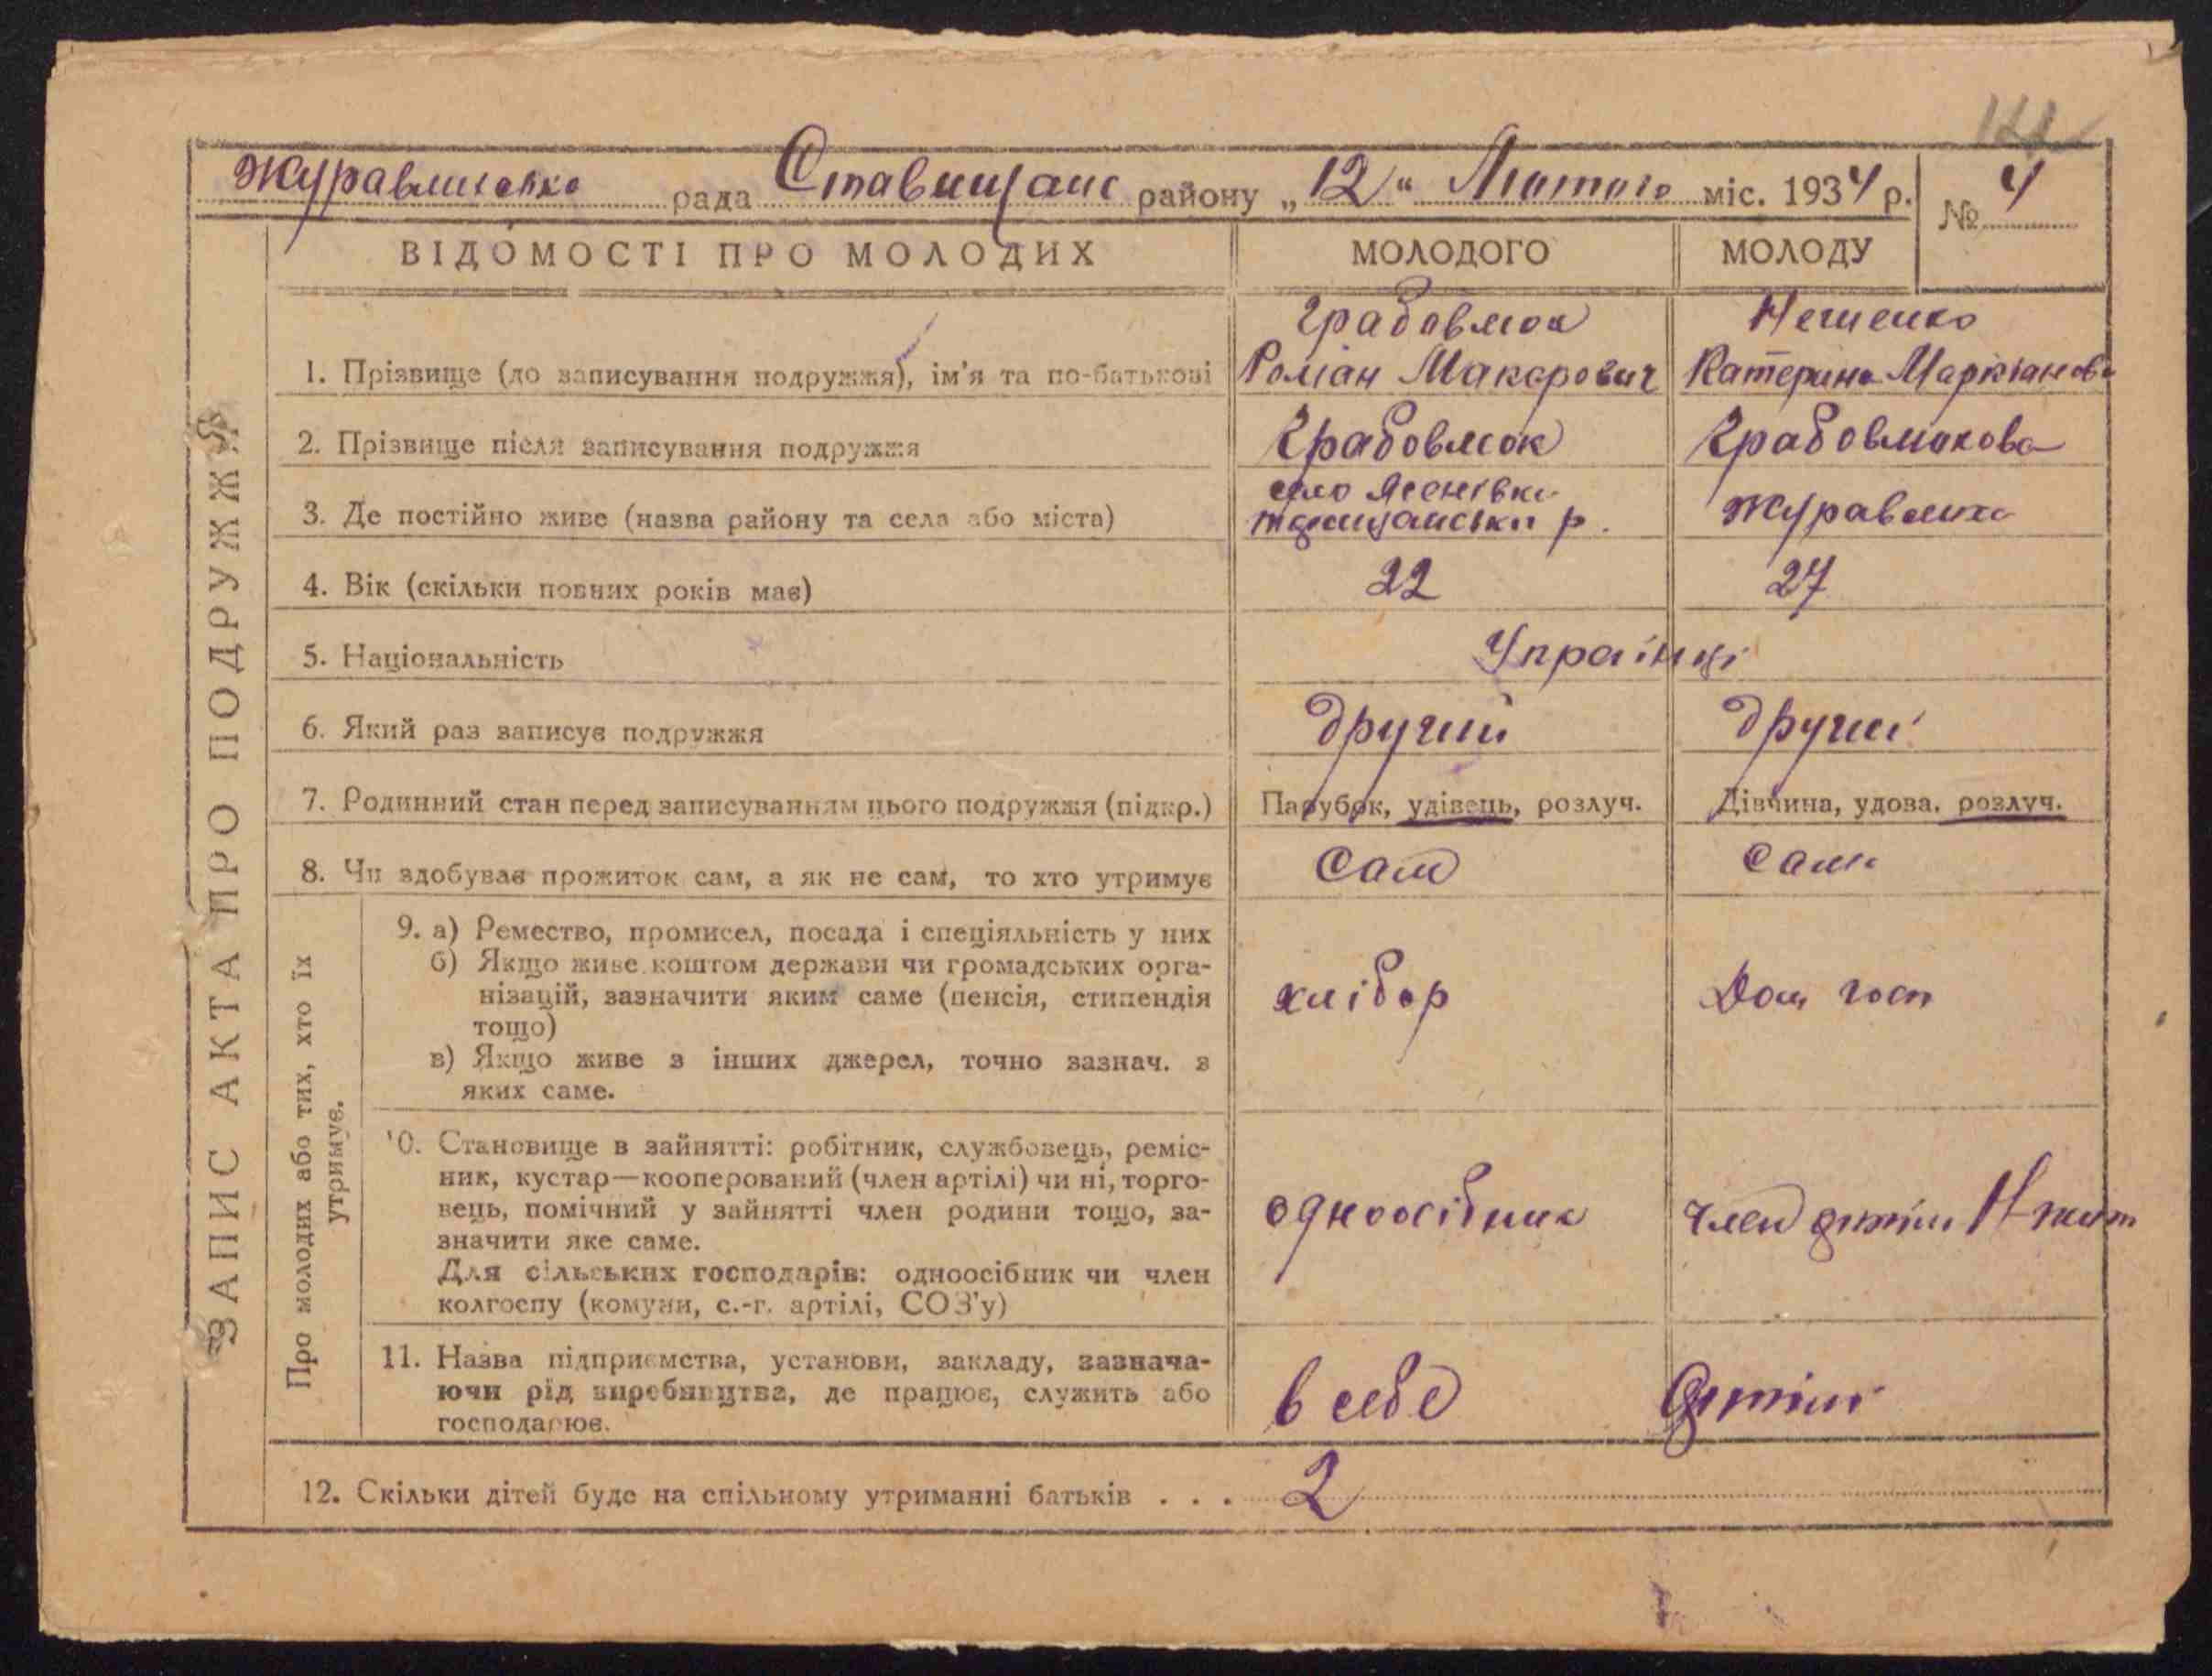 Журавлиська рада Ставищанс району „12“ Лютого міс. 1934 р. № 4
ВІДОМОСТІ ПРО МОЛОДИХ МОЛОДОГО МОЛОДУ
ЗАПИС АКТА ПРО ПОДРУЖЖЯ
Грабовлюк
1. Прізвище (до записування подружжя), ім'я та по-батькові Роман Макарович Катерина Маркіанов
2. Прізвище після записування подружжя Грабовлюк Грабовлюкова
село Ясенівка
3. Де постійно живе (назва району та села або міста) р. Журавлиха
4. Вік (скільки повних років має) 22 27
5. Національність Українці
6. Який раз записує подружжя другий другий
7. Родинний стан перед записуванням цього подружжя (підкр.) Парубок, удівець, розлуч. Дівчина, удова, розлуч.
8. Чи здобуває прожиток сам, а як не сам, то хто утримує Сам Сама
Про молодих або тих, хто їх
утримує.
9. а) Ремество, промисел, посада і спеціяльність у них
б) Якщо живе коштом держави чи громадських орга-
нізацій, зазначити яким саме (пенсія, стипендія хлібор Дом госп
тощо)
в) Якщо живе з інших джерел, точно зазнач. з
яких саме.
10. Становище в зайнятті: робітник, службовець, реміс-
ник, кустар—кооперований (член артілі) чи ні, торго-
вець, помічний у зайнятті член родини тощо, за- одноосібник член
значити яке саме.
Для сільських господарів: одноосібник чи член
колгоспу (комуни, с.-г. артілі, СОЗ'у)
11. Назва підприємства, установи, закладу, зазнача-
ючи рід виробництва, де працює, служить або в себе
господарює.
12. Скільки дітей буде на спільному утриманні батьків . . . 2